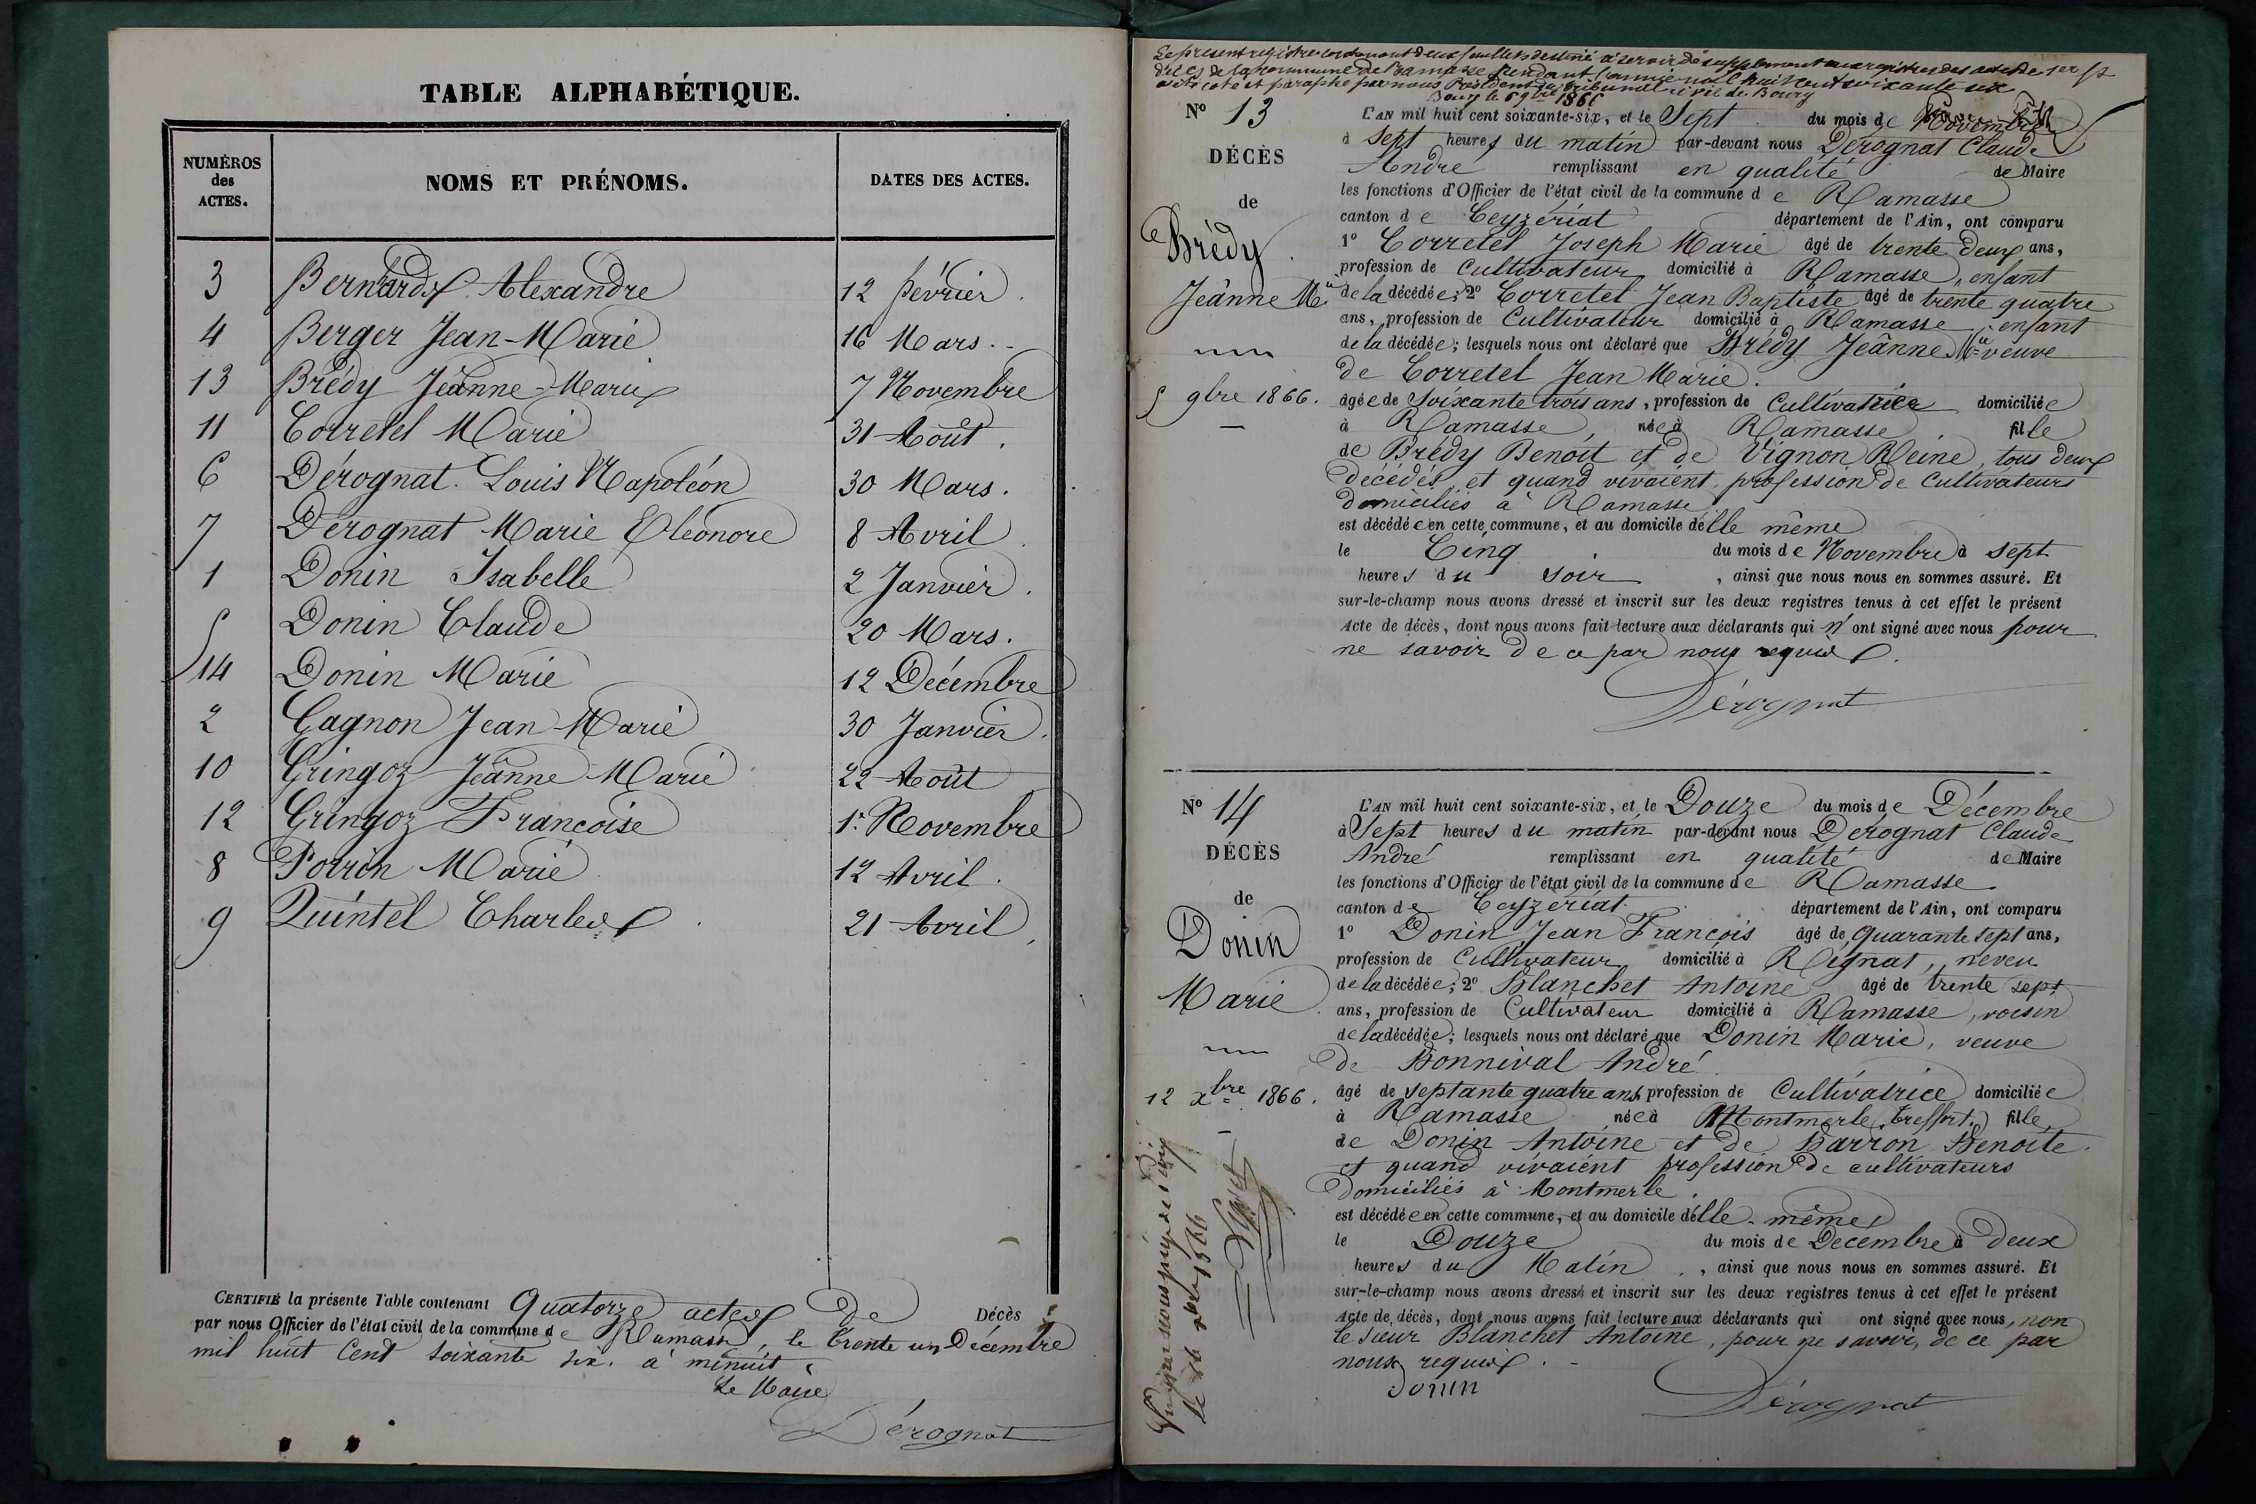 TABLE ALPHABÉTIQUE.
NUMÉROS des ACTES. NOMS ET PRÉNOMS. DATES DES ACTES.
3 Bernard Alexandre 12 février.
4 Berger Jean-Marie 16 Mars.
13 Brédy Jeânne-Marie 7 Novembre
11 Corretel Marie 31 Août.
6 Dérognat Louis Napoléon 30 Mars.
7 Dérognat Marie Eléonore 8 Avril
1 Donin Isabelle 2 Janvier.
5 Donin Claude 20 Mars.
14 Donin Marie 12 Décembre
2 Gagnon Jean Marie 30 Janvier.
10 Gringoz Jeânne Marie 22 Août
12 Gringoz Francoise 1er Novembre
8 Poirin Marie 12 Avril.
9 Quintel Charles 21 Avril
CERTIFIÉ la présente Table contenant Quatorze actes de Décès
par nous Officier de l'état civil de la commune de Ramasse, le trente un Décembre
mil huit Cent soixante six. à minuit.
Le Maire
Dérognat
Le présent registre contenant deux feuillets destiné à servir de supplement aux registres des actes de
décès de la commune de Ramasse pendant l'année mil huit cent soixante six
a été coté et paraphé par nous Président du tribunal civil de Bourg
Bourg le 6 9bre 1866
No 13
DÉCÈS
de
Brédy
Jeânne Mie
5 9bre 1866.
L'AN mil huit cent soixante-six, et le Sept du mois de Novembre
à Sept heures du matin par-devant nous Dérognat Claude
André remplissant en qualité de Maire
les fonctions d'Officier de l'état civil de la commune de Ramasse
canton de Ceyzériat département de l'Ain, ont comparu
1o Corretel Joseph Marie âgé de trente deux ans,
profession de Cultivateur domicilié à Ramasse, enfant
de la décédée; 2o Corretel Jean Baptiste âgé de trente quatre
ans, profession de Cultivateur domicilié à Ramasse, enfant
de la décédée; lesquels nous ont déclaré que Brédy Jeânne Mie veuve
de Corretel Jean Marie.
âgée de Soixante trois ans, profession de Cultivatrice domiciliée
à Ramasse, née à Ramasse fille
de Brédy Benoit et de Vignon Reine, tous deux
décédés et quand vivaient, profession de Cultivateurs
domiciliés à Ramasse
est décédée en cette commune, et au domicile d'elle même
le Cinq du mois de Novembre à sept
heures du soir, ainsi que nous nous en sommes assuré. Et
sur-le-champ nous avons dressé et inscrit sur les deux registres tenus à cet effet le présent
Acte de décès, dont nous avons fait lecture aux déclarants qui n'ont signé avec nous pour
ne savoir de ce par nous requis.
Dérognat
No 14
DÉCÈS
de
Donin
Marie
12 xbre 1866.
L'AN mil huit cent soixante-six, et le Douze du mois de Décembre
à Sept heures du matin par-devant nous Dérognat Claude
André remplissant en qualité de Maire
les fonctions d'Officier de l'état civil de la commune de Ramasse
canton de Ceyzériat département de l'Ain, ont comparu
1o Donin Jean François âgé de Quarante sept ans,
profession de Cultivateur domicilié à Rignat, neveu
de la décédée; 2o Blanchet Antoine âgé de trente sept
ans, profession de Cultivateur domicilié à Ramasse, voisin
de la décédée; lesquels nous ont déclaré que Donin Marie, veuve
de Bonnival André
âgé de septante quatre ans profession de Cultivatrice domiciliée
à Ramasse née à Montmerle (treffort) fille
de Donin Antoine et de Barron Benoite.
et quand vivaient profession de cultivateurs
domiciliés à Montmerle.
est décédée en cette commune, et au domicile d'elle-même
le Douze du mois de Décembre à deux
heures du Matin, ainsi que nous nous en sommes assuré. Et
sur-le-champ nous avons dressé et inscrit sur les deux registres tenus à cet effet le présent
Acte de décès, dont nous avons fait lecture aux déclarants qui ont signé avec nous, non
le sieur Blanchet Antoine, pour ne savoir, de ce par
nous requis.
Donin
Dérognat